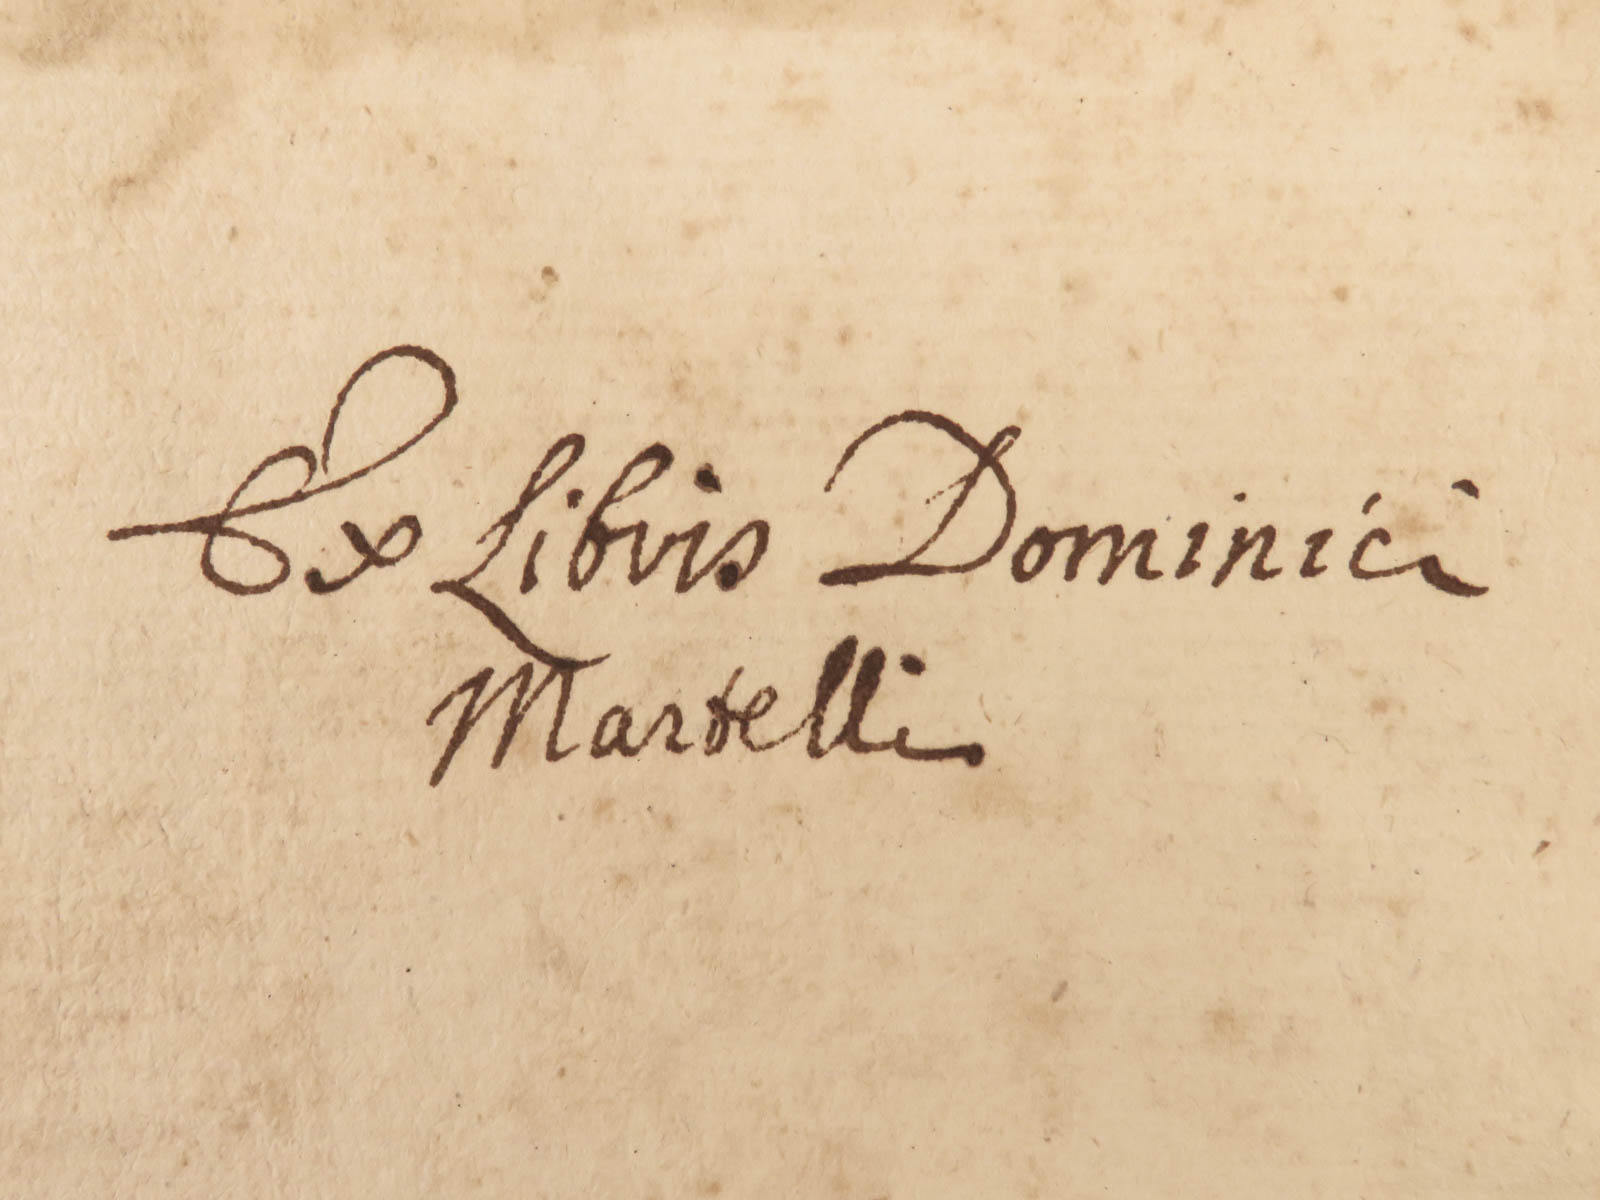 Ex Libris Dominici
Martelli